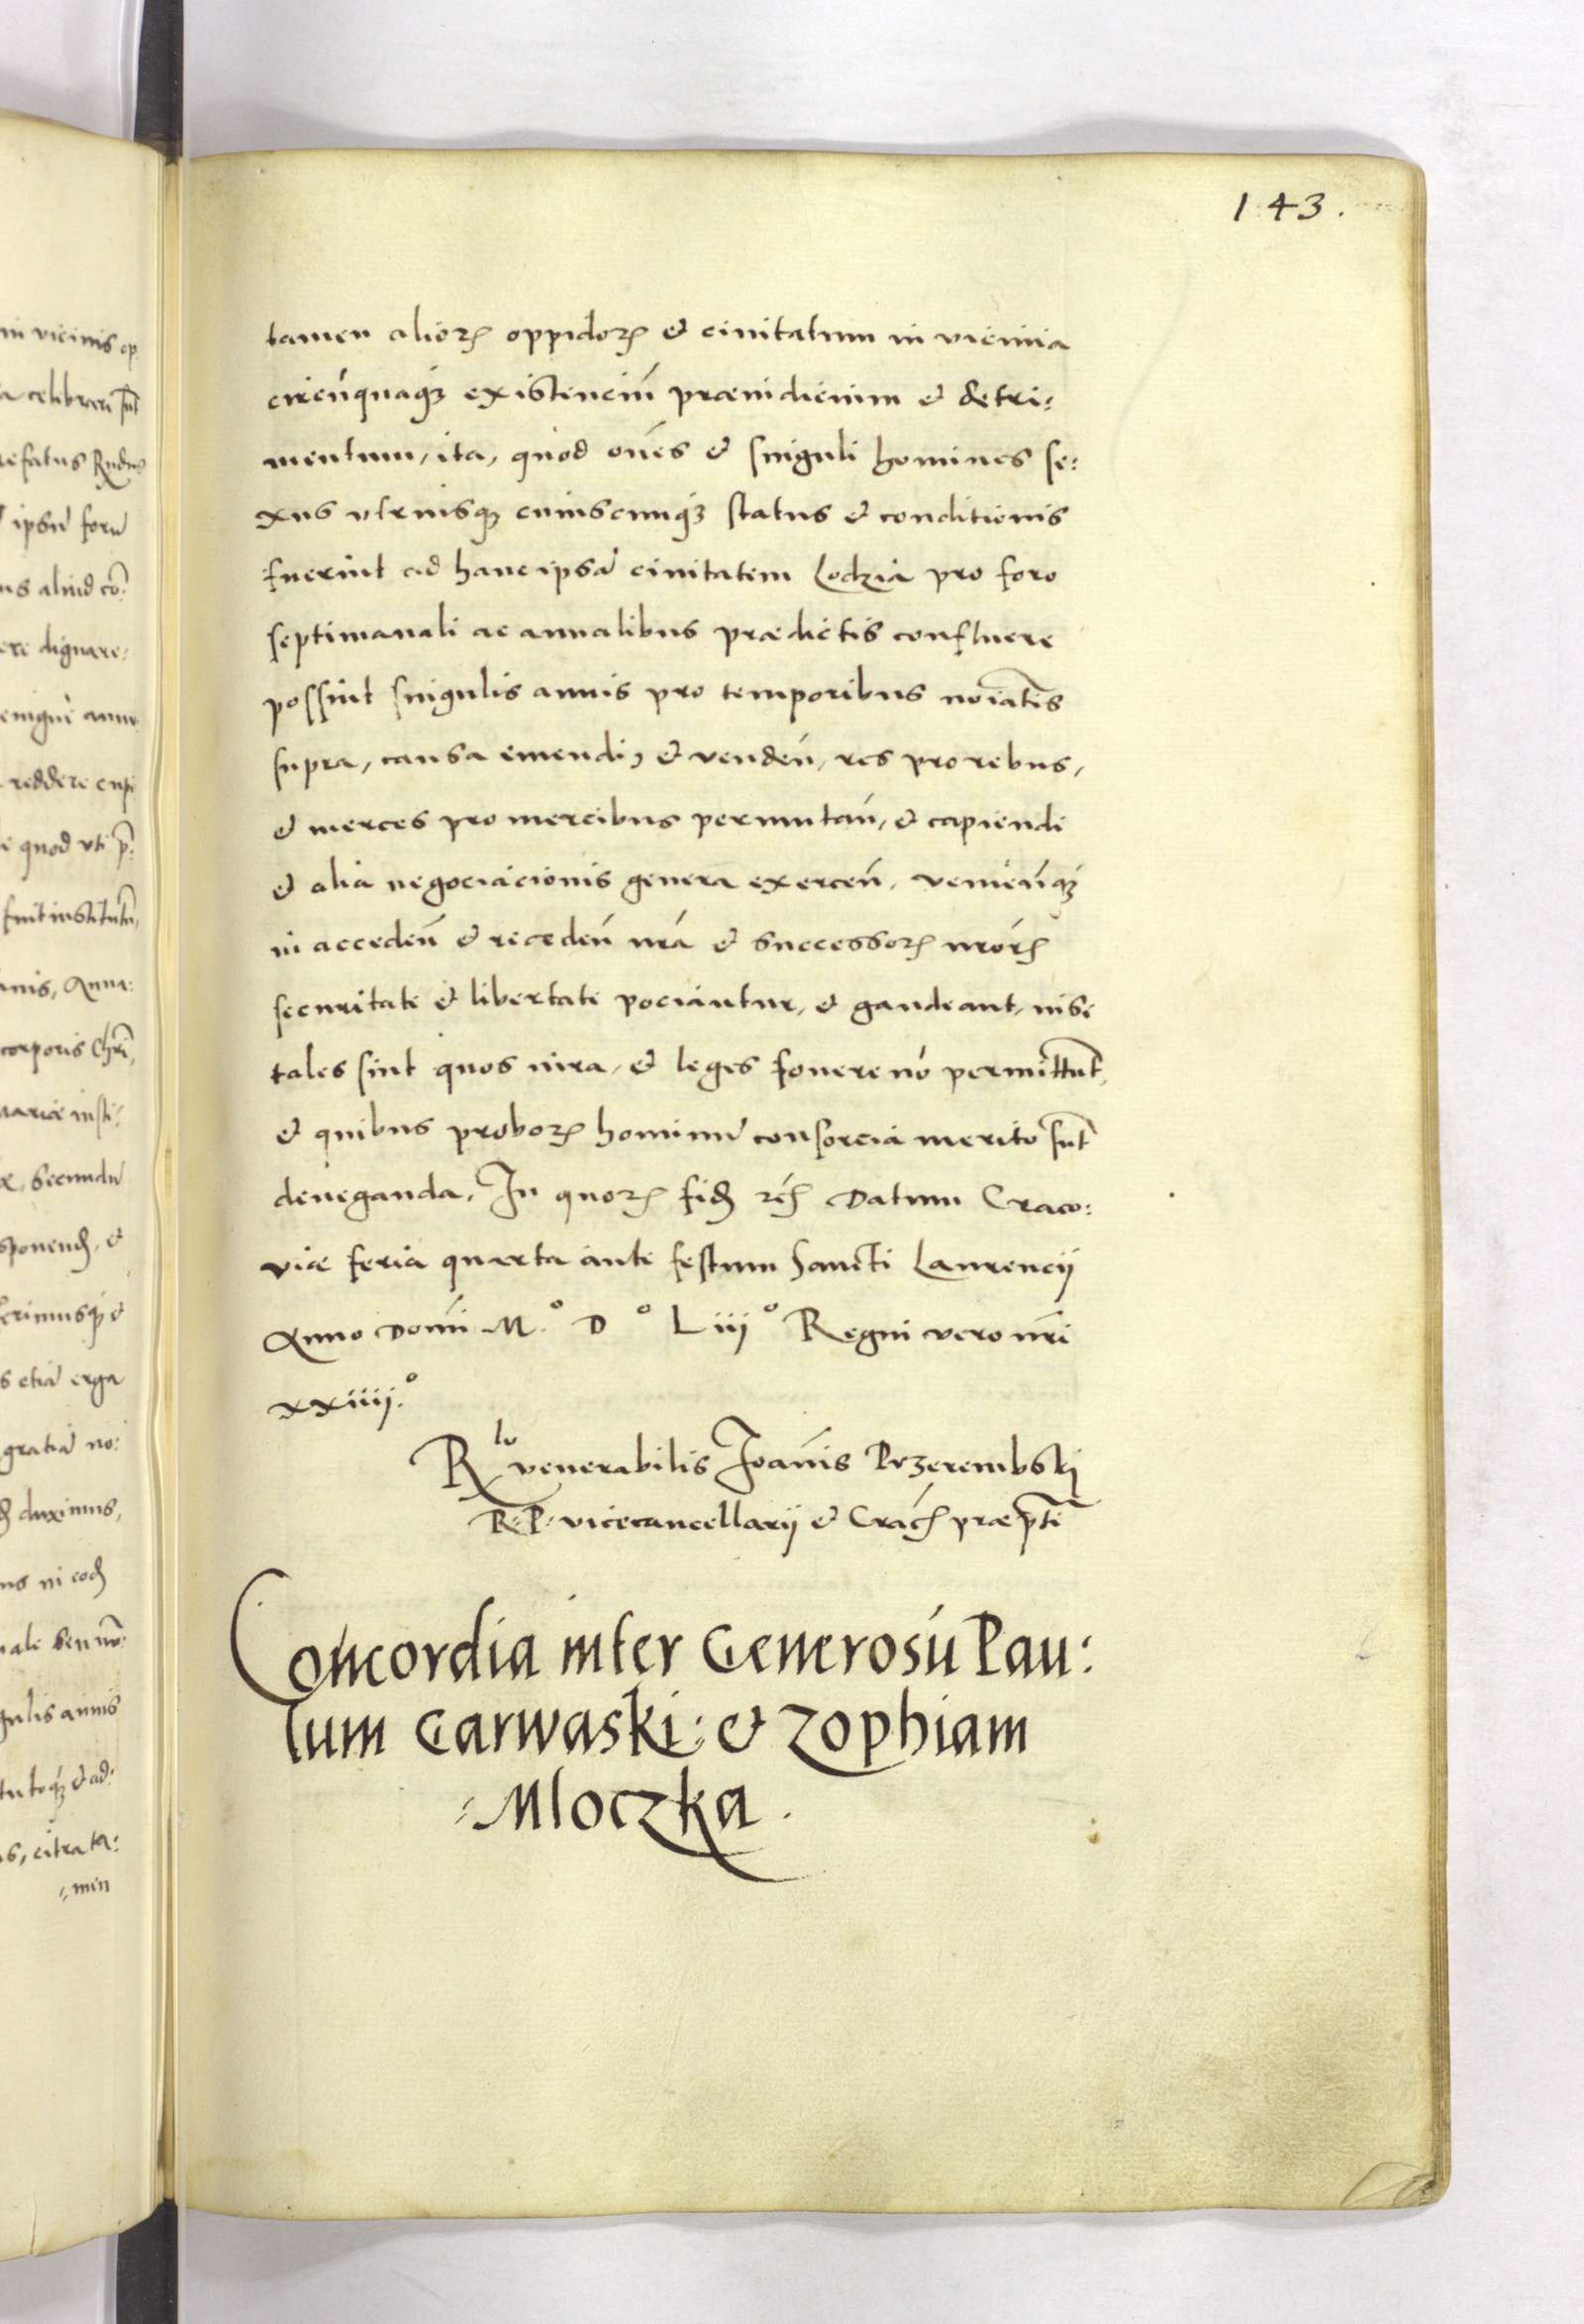 143.
tamen alior. oppidor. et civitatum in vicinia
circũquaq; existenciũ præiudicium et detri:
mentum, ita, quod oẽs et singuli homines se:
xus utriusq; cuiuscunq; status et conditionis
fuerint ad hanc ipsã civitatem Lodzia pro foro
septimanali ac annalibus prædictis confluere
possint singulis annis pro temporibus noiatis
supra, causa emendi, et venden̄, res pro rebus,
et merces pro mercibus permutan̄, et capiendi
et alia negociacionis genera exercen̄, venien̄q;
in acceden̄ et receden̄ nrã et successor. nrõr.
securitate et libertate pociantur, et gaudeant, nisi
tales sint quos iura, et leges fovere nõ permittunt,
et quibus probor. hominũ consorcia merito sũt
deneganda. In quor. fid. rei Datum Craco:
viæ feria quarta ante festum Sancti Laurencij
Anno Domi M.° D° Liij° Regni vero nri
xxiiij.°
R lo venerabilis Joanis Przerembskj
R. P. vicecancellarij et Crac. præpti
Concordia inter Generosũ Pau:
lum Garwaski: et Zophiam
Mloczka.
in vicinis op
celibrari sũt
refatus Rndus
ipsũ forũ
us aliud cõ:
ere dignare:
reddere cupi
quod uti p:
fuit institutũ,
corporis Chri,
secundũ
sponend, et
s etiã erga
gratiã no:
duximus,
us in eod
gulis annis
s, citra ta:
men